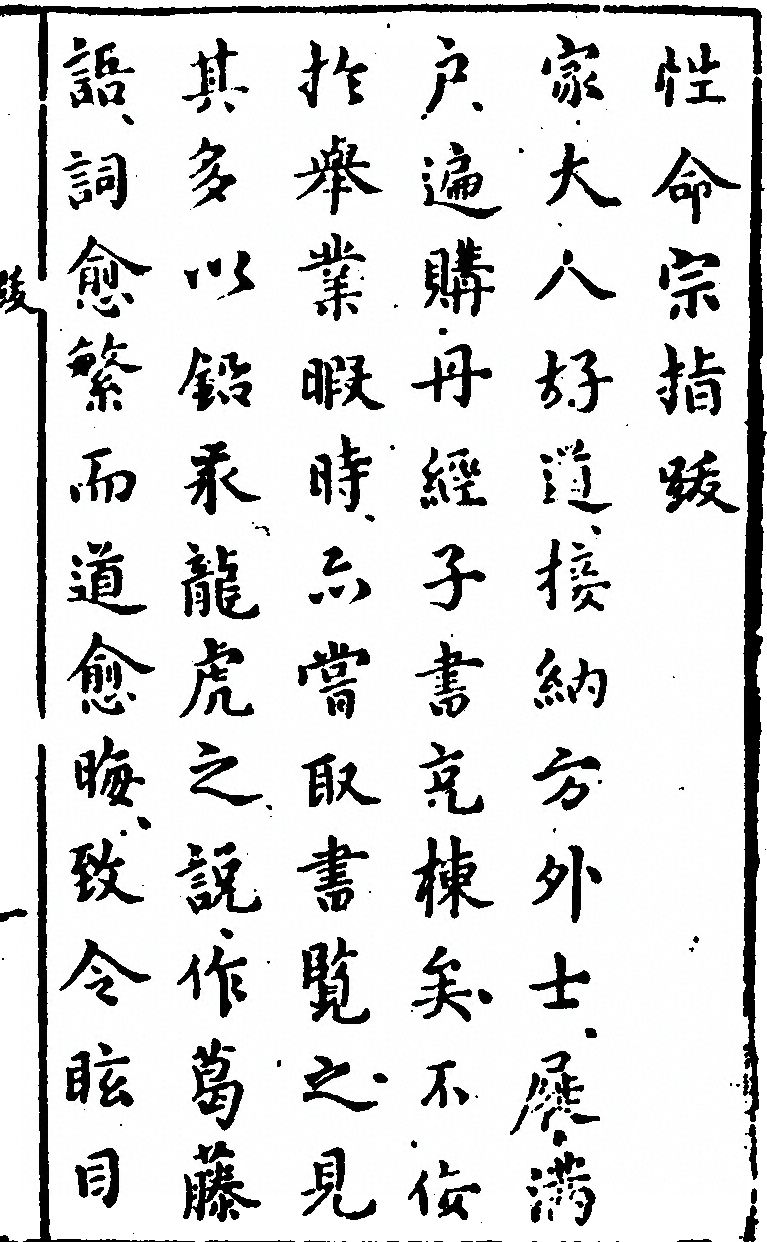 性命宗指跋
家大人好道、接納方外士、屨滿
户遍購丹經子書充棟矣、不佞
扵舉業暇時、亦嘗取書覽之、見
其多以鉛汞龍虎之說、作葛藤
語、詞愈繁而道愈晦、致令眩目
跋
一